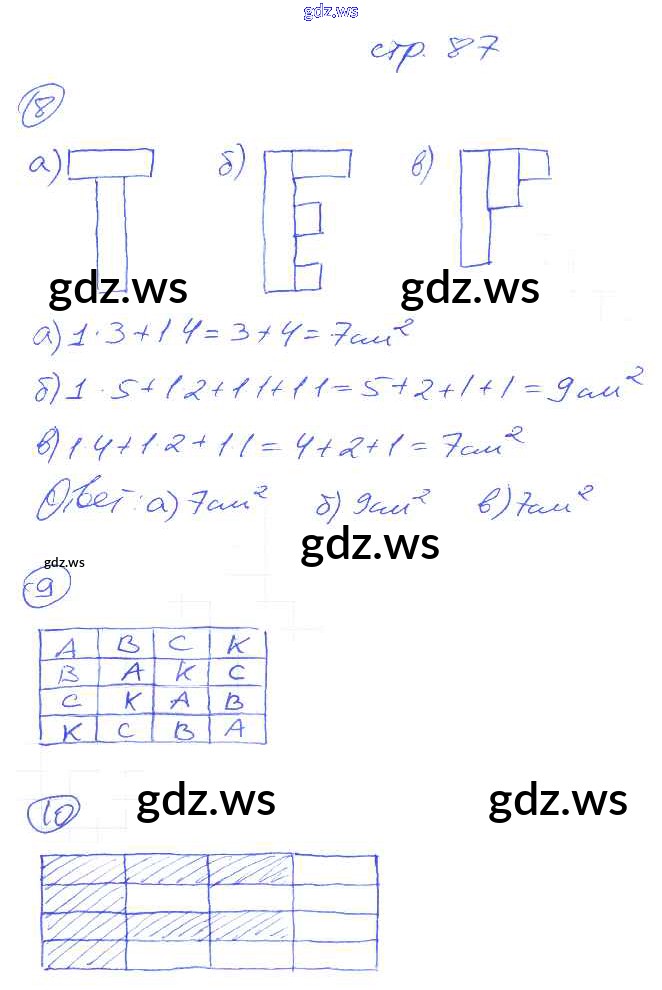 gdz.ws
стр. 87
8
а) б) в)
gdz.ws gdz.ws
а) 1·3+1 4=3+4=7см²
б) 1·5+1 2+1 1+1 1=5+2+1+1=9см²
в) 1 4+1·2+1·1=4+2+1=7см²
Ответ: а) 7см² б) 9см² в) 7см²
gdz.ws
gdz.ws
9
А В С К
В А К С
С К А В
К С В А
gdz.ws gdz.ws
10